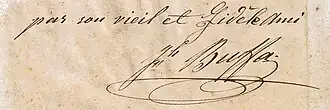 par son vieil et fidele Ami
Jh Buffa